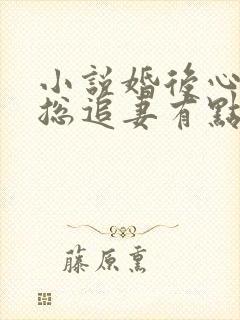 小說婚後心
總追妻有點
藤原熏